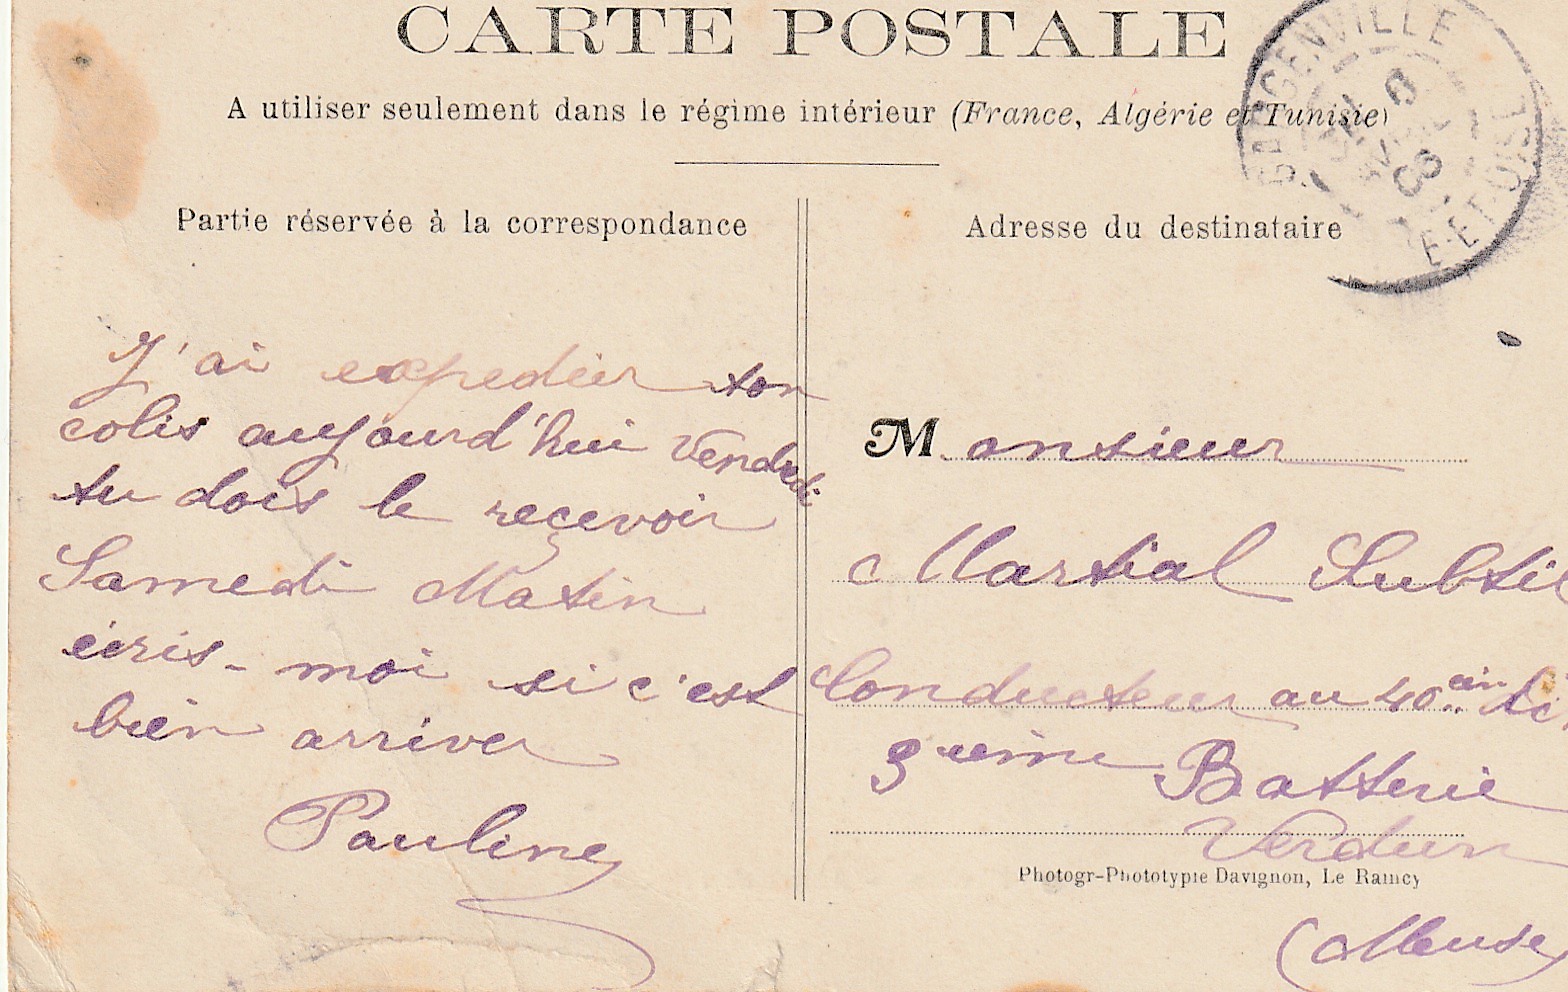 CARTE POSTALE
A utiliser seulement dans le régime intérieur (France, Algérie et Tunisie)
GARGENVILLE
6
E-ET-OISE
Partie réservée à la correspondance
Adresse du destinataire
J'ai expedier ton
colis aujourd'hui Vendredi
tu dois le reçevoir
Samedi Matin
écris-moi si c'est
bien arriver
Pauline
Monsieur
Martial Subtil
Conducteur au 40
Batterie
Verdun
Photogr-Phototypie Davignon, Le Raincy
(Meuse